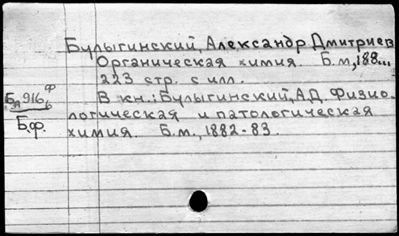 Булыгинский, Александр Дмитриев
Органическая химия. Б.м., 188...
223 стр. с илл.
Бл 916 ф/6
В кн.: Булыгинский, А.Д. Физио-
логическая и патологическая
Б.ф.
химия. Б.м., 1882-83.